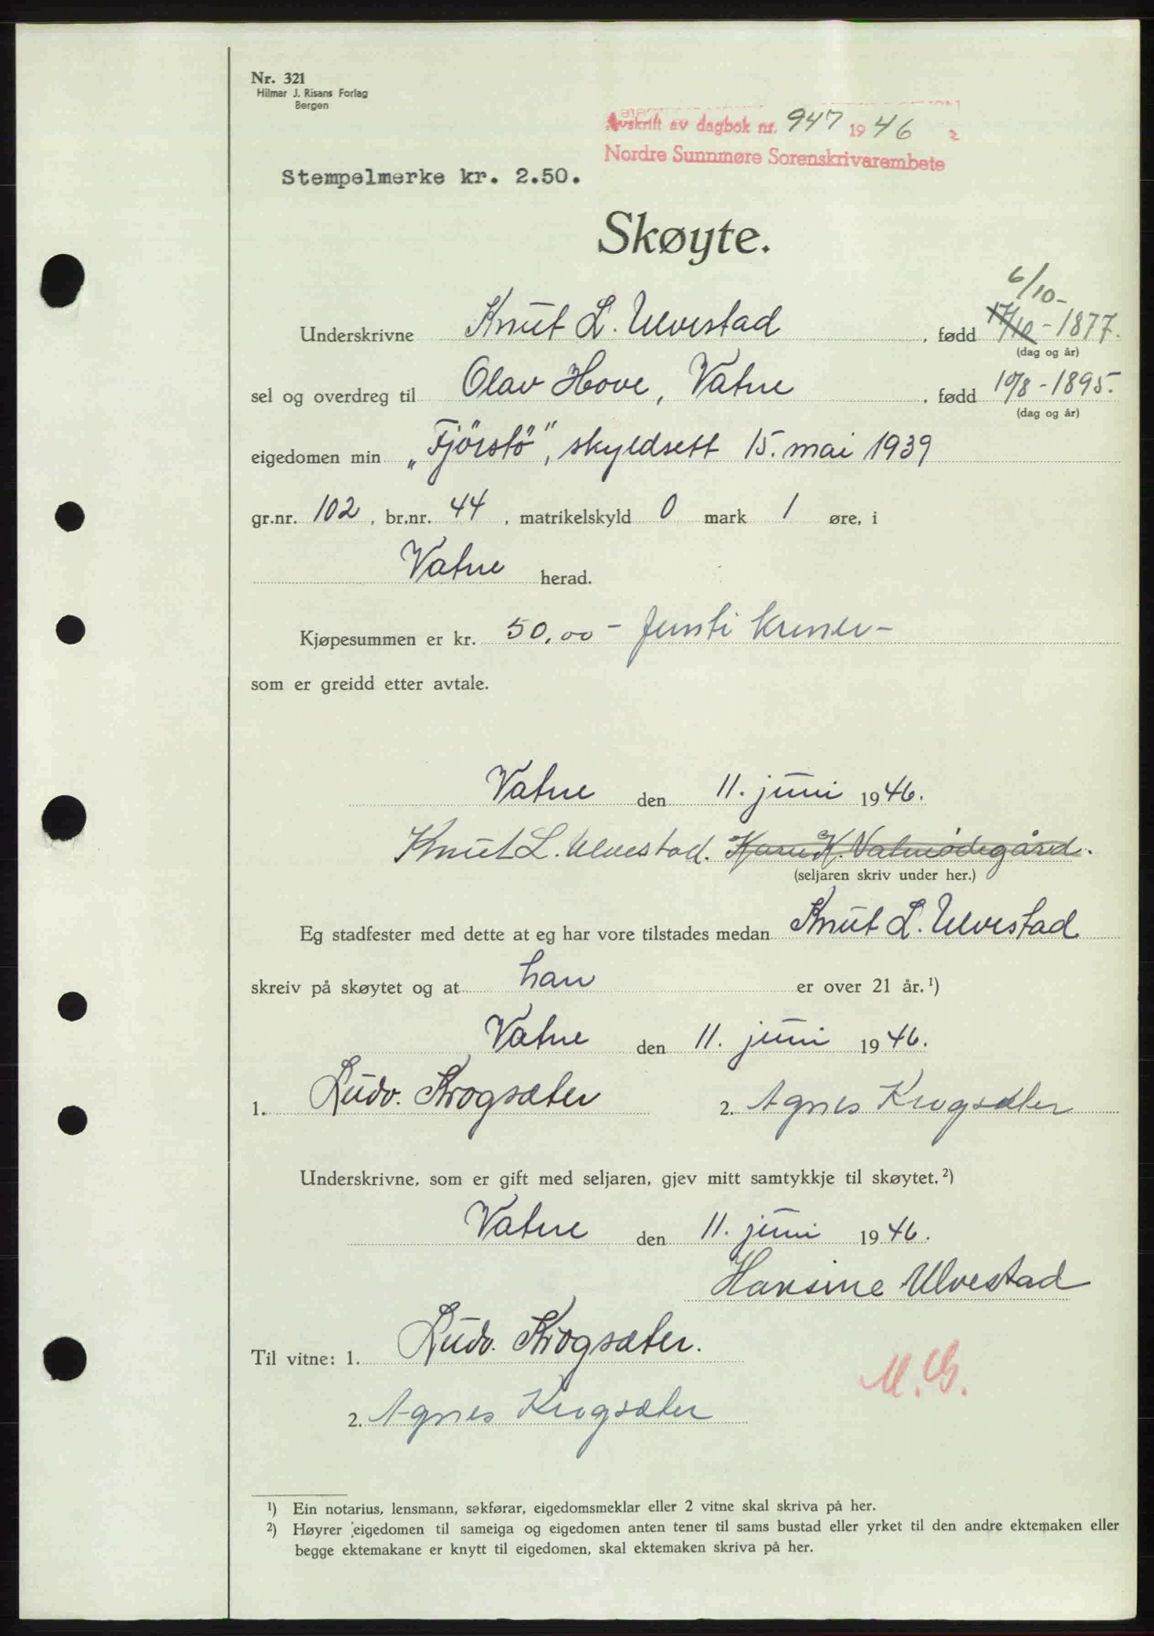 Nr. 321
Hilmar J. Risans Forlag
Bergen
Avskrift av dagbok nr. 947 1946
Nordre Sunnmøre Sorenskrivarembete
Stempelmerke kr. 2.50.
Skøyte.
6/10-
Underskrivne Knut L. Ulvestad, fødd 17/10-1877.
(dag og år)
sel og overdreg til Olav Hove, Vatne, fødd 10/8-1895.
(dag og år)
eigedomen min „Fjörstö”, skyldsett 15. mai 1939
gr.nr. 102, br.nr. 44, matrikelskyld 0 mark 1 øre, i
Vatne herad.
Kjøpesummen er kr. 50,00 - femti kroner -
som er greidd etter avtale.
Vatne den 11. juni 1946.
Knut L. Ulvestad.
(seljaren skriv under her.)
Eg stadfester med dette at eg har vore tilstades medan Knut L. Ulvestad
skreiv på skøytet og at han er over 21 år.¹)
Vatne den 11. juni 1946.
1. Ludv. Krogsæter 2. Agnes Krogsæter
Underskrivne, som er gift med seljaren, gjev mitt samtykkje til skøytet.²)
Vatne den 11. juni 1946.
Hansine Ulvestad
Til vitne: 1. Ludv. Krogsæter.
M.G.
2. Agnes Krogsæter
¹) Ein notarius, lensmann, sakførar, eigedomsmeklar eller 2 vitne skal skriva på her.
²) Høyrer eigedomen til sameiga og eigedomen anten tener til sams bustad eller yrket til den andre ektemaken eller
begge ektemakane er knytt til eigedomen, skal ektemaken skriva på her.